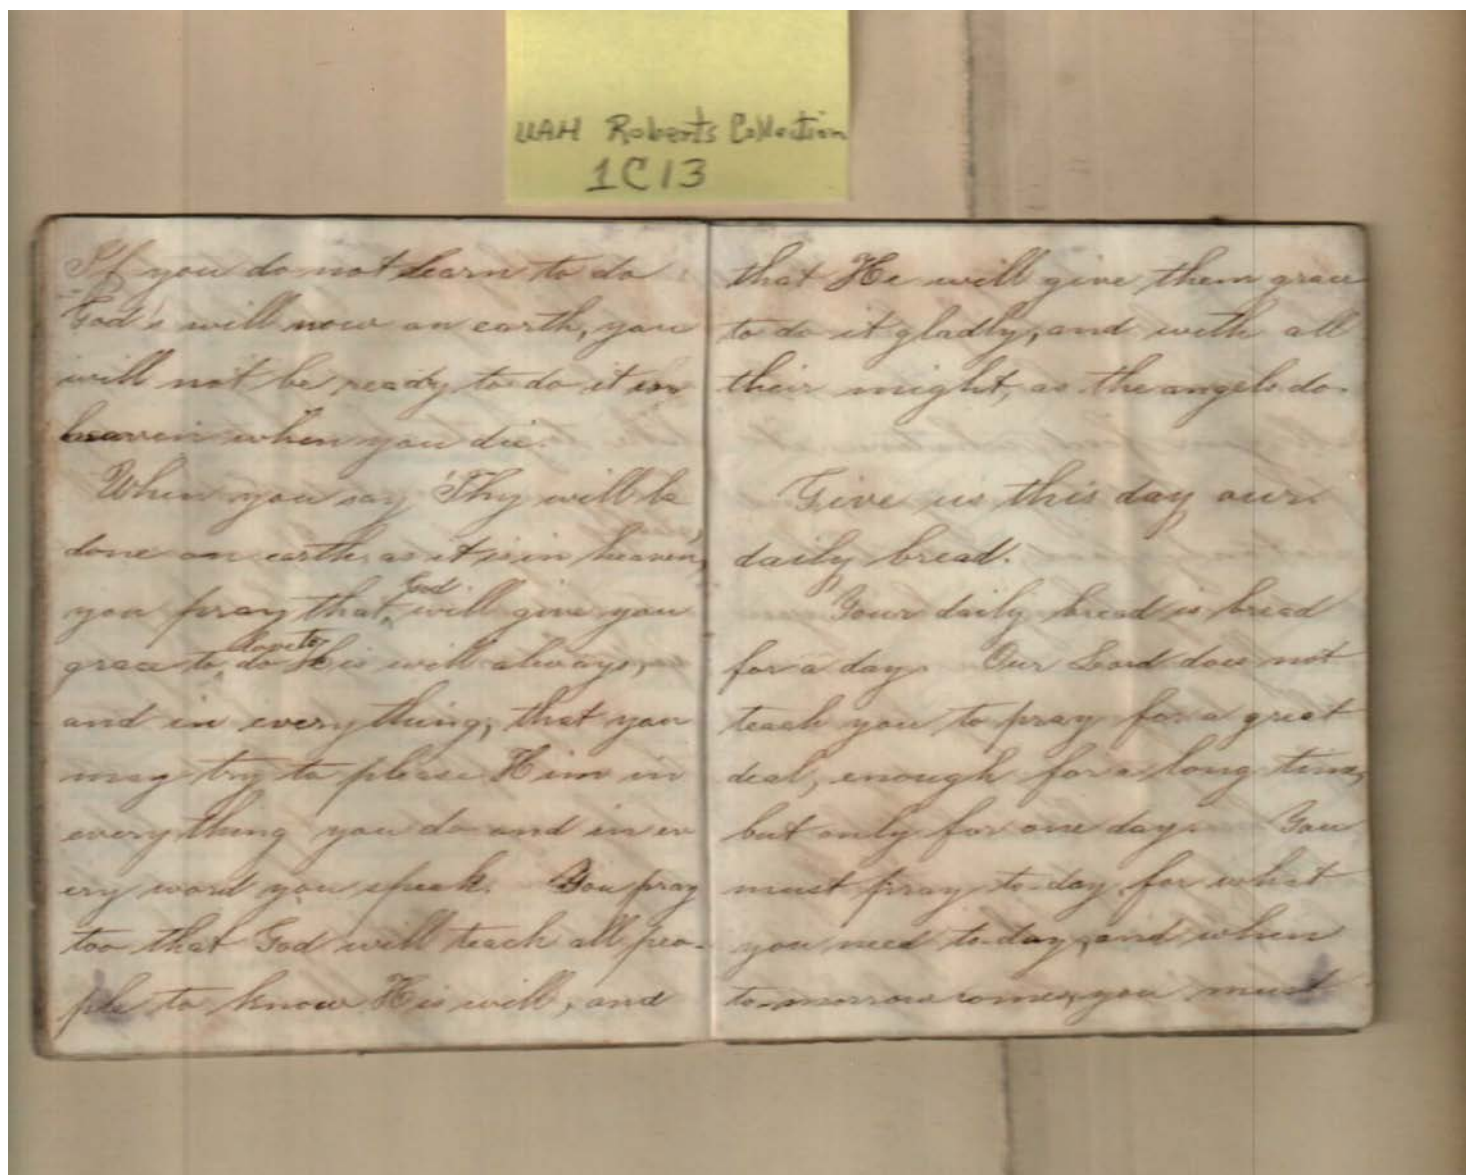 UAH Roberts Collection
1C13
If you do not learn to do
God's will now on earth, you
will not be ready to do it in
heaven when you die.
When you say 'Thy will be
done on earth as it is in heaven,'
God
you pray that will give you
love to
grace to do His will always,
and in everything, that you
may try to please Him in
everything you do and in ev
ery word you speak. You pray
too that God will teach all peo-
ple to know His will, and
that He will give them grace
to do it gladly, and with all
their might, as the angels do.
Give us this day our
daily bread.
Your daily bread is bread
for a day. Our Lord does not
teach you to pray for a great
deal, enough for a long time,
but only for one day. You
must pray to-day for what
you need to-day, and when
to-morrow comes, you must